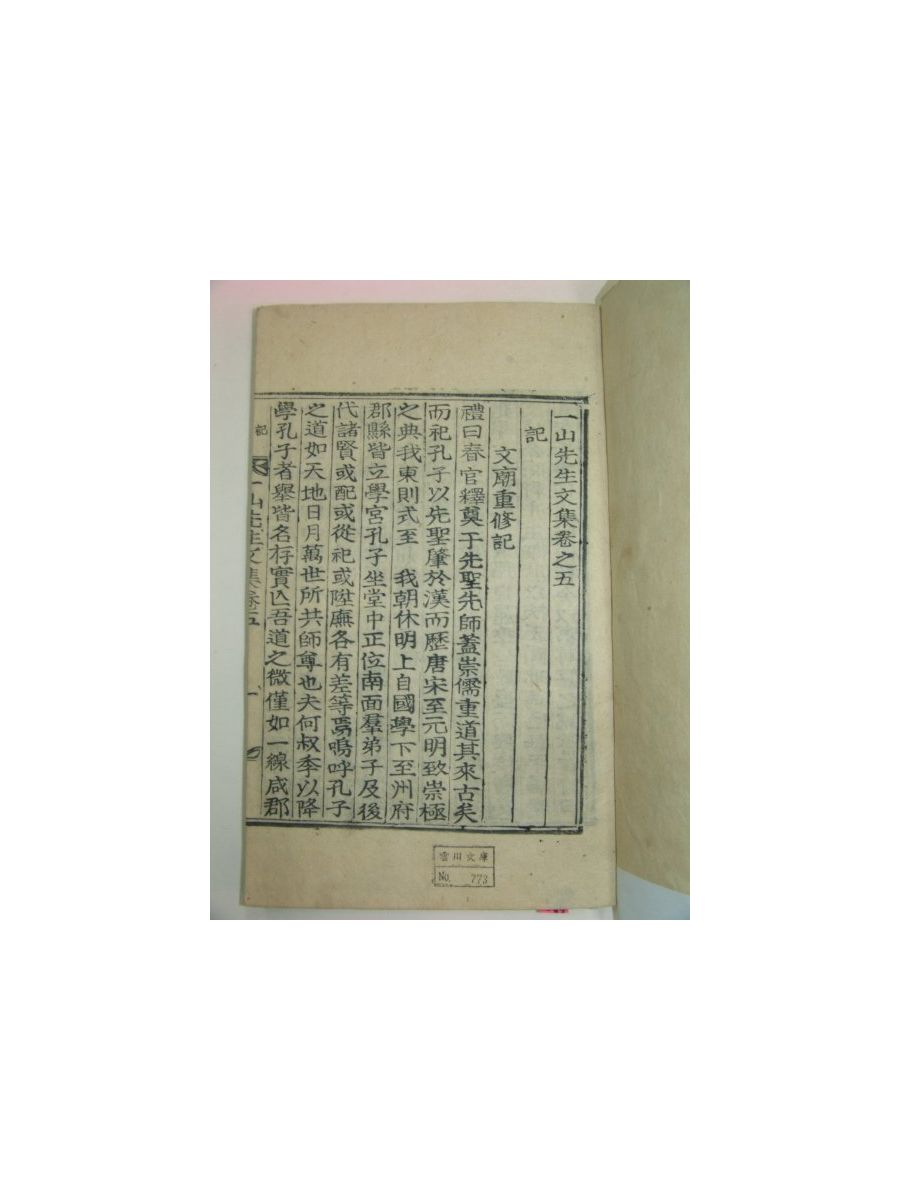 一山先生文集卷之五
記
文廟重修記
禮曰春官釋奠于先聖先師蓋崇儒重道其來古矣
而祀孔子以先聖肇於漢而歷唐宋至元明致崇極
之典我東則式至 我朝休明上自國學下至州府
郡縣皆立學宮孔子坐堂中正位南面羣弟子及後
代諸賢或配或從祀或陞廡各有差等焉嗚呼孔子
之道如天地日月萬世所共師尊也夫何叔季以降
學孔子者舉皆名存實亾吾道之微僅如一線咸郡
記 一山先生文集卷五 一
雲川文庫
No. 773